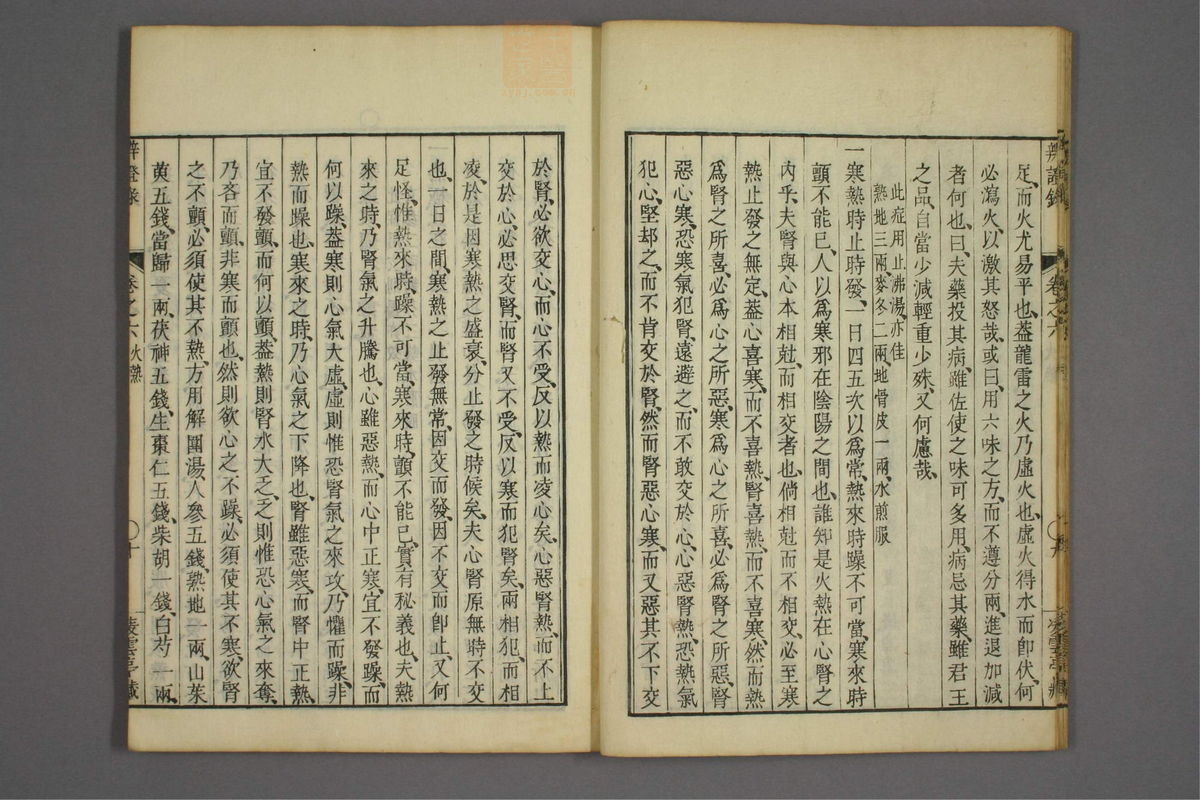 足、而火尤易平也、葢龍雷之火乃虛火也、虛火得水而卽伏、何
必瀉火、以激其怒哉、或曰、用六味之方、而不遵分兩、進退加減
者何也、曰、夫藥投其病、雖佐使之味可多用、病忌其藥、雖君王
之品、自當少減輕重少殊、又何慮哉、
此症用止沸湯、亦佳
熟地三兩、麥冬二兩、地骨皮一兩、水煎服
一寒熱時止時發、一日四五次以爲常、熱來時躁不可當、寒來時
顫不能已、人以爲寒邪在陰陽之間也、誰知是火熱在心腎之
內乎、夫腎與心本相尅、而相交者也、倘相尅而不相交、必至寒
熱止發之無定、葢心喜寒、而不喜熱、腎喜熱、而不喜寒、然而熱
爲腎之所喜、必爲心之所惡、寒爲心之所喜、必爲腎之所惡、腎
惡心寒、恐寒氣犯腎、遠避之、而不敢交於心、心惡腎熱、恐熱氣
犯心、堅却之、而不肯交於腎、然而腎惡心寒、而又惡其不下交
辨證錄
卷之六
九
凌雲亭藏
於腎、必欲交心、而心不受、反以熱而凌心矣、心惡腎熱、而不上
交於心、必思交腎、而腎又不受、反以寒而犯腎矣、兩相犯、而相
凌、於是因寒熱之盛衰、分止發之時候矣、夫心腎原無時不交
也、一日之間、寒熱之止發無常、因交而發、因不交而卽止、又何
足怪、惟熱來時、躁不可當、寒來時、顫不能已、實有秘義也、夫熱
來之時、乃腎氣之升騰也、心雖惡熱、而心中正寒、宜不發躁、而
何以躁、葢寒則心氣大虛、虛則惟恐腎氣之來攻、乃懼而躁、非
熱而躁也、寒來之時、乃心氣之下降也、腎雖惡寒、而腎中正熱、
宜不發顫、而何以顫、葢熱則腎水大乏、乏則惟恐心氣之來奪、
乃吝而顫、非寒而顫也、然則欲心之不躁、必須使其不寒、欲腎
之不顫、必須使其不熱、方用解圍湯、人參五錢、熟地一兩、山茱
萸五錢、當歸一兩、茯神五錢、生棗仁五錢、柴胡一錢、白芍一兩、
辨證錄
卷之六 火熱
十
凌雲亭藏